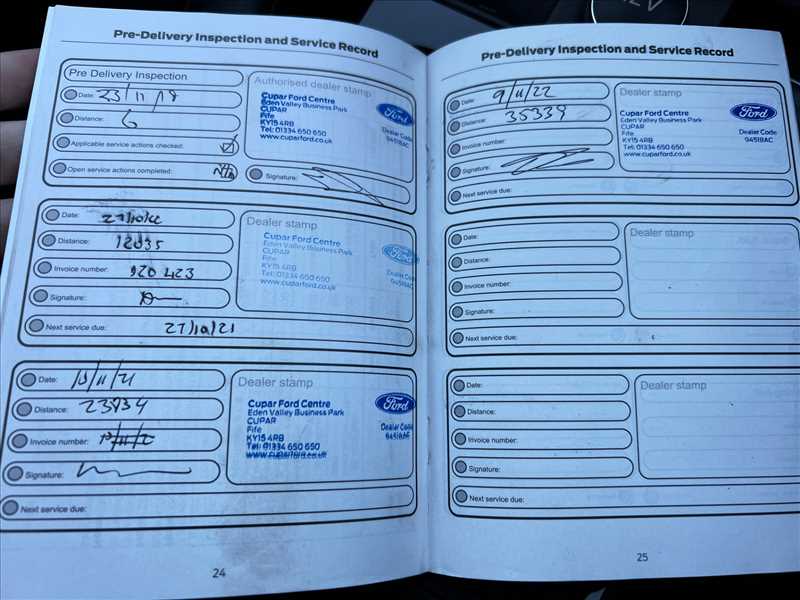 Pre-Delivery Inspection and Service Record
Pre Delivery Inspection
Date: 23/11/18
Distance: 6
Applicable service actions checked: ☑
Open service actions completed: N/A
Authorised dealer stamp
Cupar Ford Centre
Eden Valley Business Park
CUPAR
Fife
KY15 4RB
Tel: 01334 650 650
www.cuparford.co.uk
Ford
Dealer Code
94518AC
Signature:
Date:
Distance: 12035
Invoice number: 920 423
Signature:
Next service due: 27/10/21
Dealer stamp
Cupar Ford Centre
Eden Valley Business Park
CUPAR
Fife
KY15 4RB
Tel: 01334 650 650
www.cuparford.co.uk
Ford
Dealer Code
94518AC
Date: 10/11/21
Distance: 23734
Invoice number:
Signature:
Next service due:
Dealer stamp
Cupar Ford Centre
Eden Valley Business Park
CUPAR
Fife
KY15 4RB
Tel: 01334 650 650
www.cuparford.co.uk
Ford
Dealer Code
94518AC
24
Pre-Delivery Inspection and Service Record
Date: 9/11/22
Distance: 35339
Invoice number:
Signature:
Next service due:
Dealer stamp
Cupar Ford Centre
Eden Valley Business Park
CUPAR
Fife
KY15 4RB
Tel: 01334 650 650
www.cuparford.co.uk
Ford
Dealer Code
94518AC
Date:
Distance:
Invoice number:
Signature:
Next service due:
Dealer stamp
Date:
Distance:
Invoice number:
Signature:
Next service due:
Dealer stamp
25